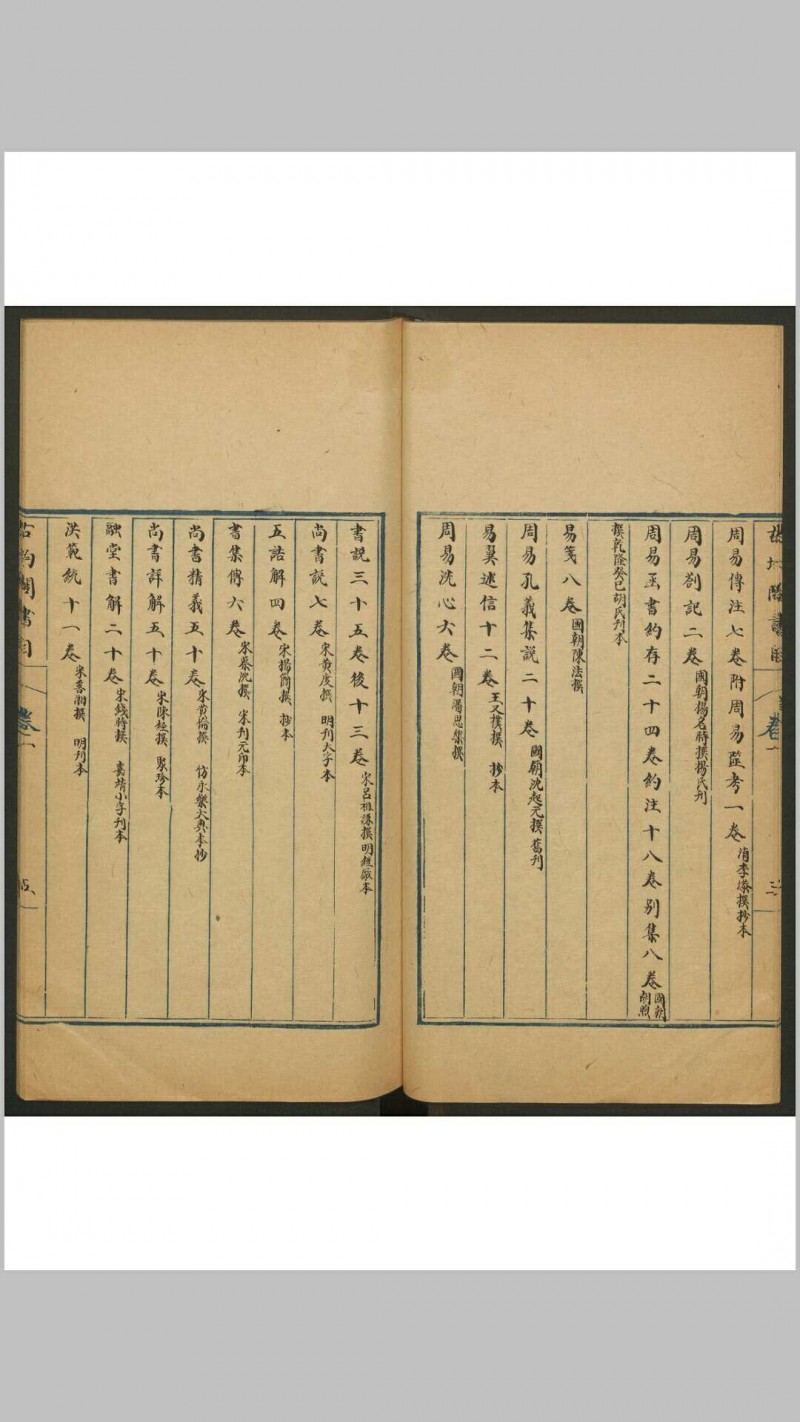 周易傳注七卷附周易筮考一卷 清李塨撰抄本
周易劄記二卷 國朝楊名時撰楊氏刋
周易函書約存二十四卷約注十八卷別集八卷 國朝胡煦
撰乾隆癸巳胡氏刋本
易箋八卷 國朝陳法撰
周易孔義集說二十卷 國朝沈起元撰 舊刋
易翼述信十二卷 王又樸撰 抄本
周易洗心六卷 國朝
書說三十五卷後十三卷 宋呂祖謙撰明
尚書說七卷 宋黃度撰 明刋大字本
五誥解四卷 宋楊簡撰 抄本
書集傳六卷 宋蔡沈撰 宋刋元印本
尚書精義五十卷 宋黃倫撰 仿永樂大典本抄
尚書詳解五十卷 宋陳經撰 聚珍本
融堂書解二十卷 宋錢時撰 嘉靖小字刋本
洪範統十一卷 宋 撰 明刋本
卷一